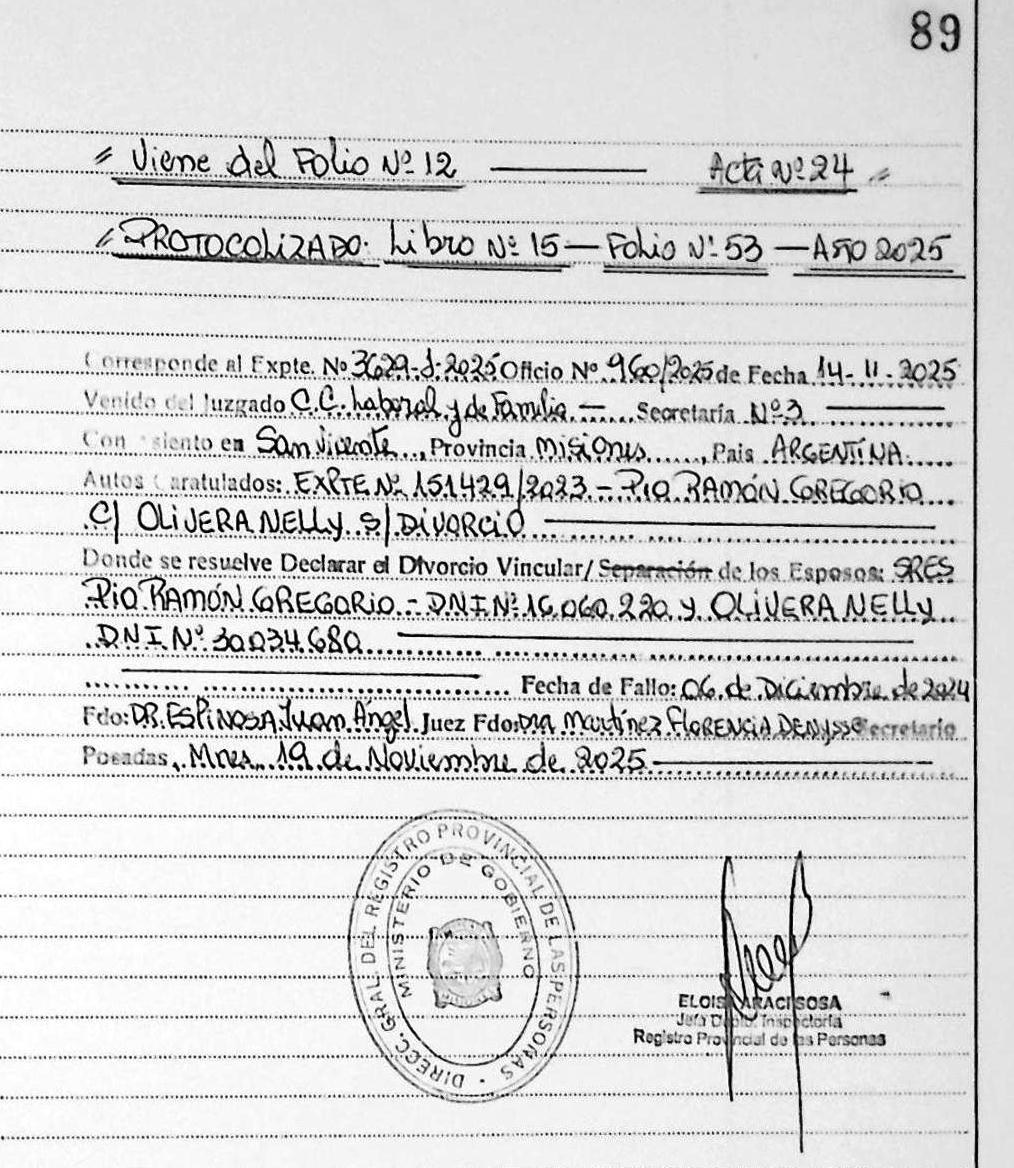 89
" Viene del Folio Nº 12 —— Acta Nº 24 "
" PROTOCOLIZADO: Libro Nº 15 — Folio Nº 53 — Año 2025
Corresponde al Expte. Nº 3629-J-2025 Oficio Nº 960/2025 de Fecha 14-11-2025
Venido del Juzgado C.C. Laboral y de Familia — Secretaría Nº 3
Con asiento en San Vicente, Provincia Misiones, Pais ARGENTINA
Autos Caratulados: EXPTE Nº 151429/2023 - Pio RAMÓN GREGORIO
C/ OLIVERA NELLY S/ DIVORCIO
Donde se resuelve Declarar el Divorcio Vincular/ Separación de los Esposos: SRES
Pio RAMÓN GREGORIO - DNI Nº 16.060.220 y OLIVERA NELLY
DNI Nº 30.034.680
Fecha de Fallo: 06 de Diciembre de 2024
Fdo: DR. ESPINOSA Juan Ángel Juez Fdo: DRA Martínez FLORENCIA DENYSS Secretario
Posadas, Mnes. 19 de Noviembre de 2025
DIRECC. GRAL. DEL REGISTRO PROVINCIAL DE LAS PERSONAS
MINISTERIO DE GOBIERNO
ARACI SOSA
Jefa Dpto. Inspectoría
Registro Provincial de las Personas